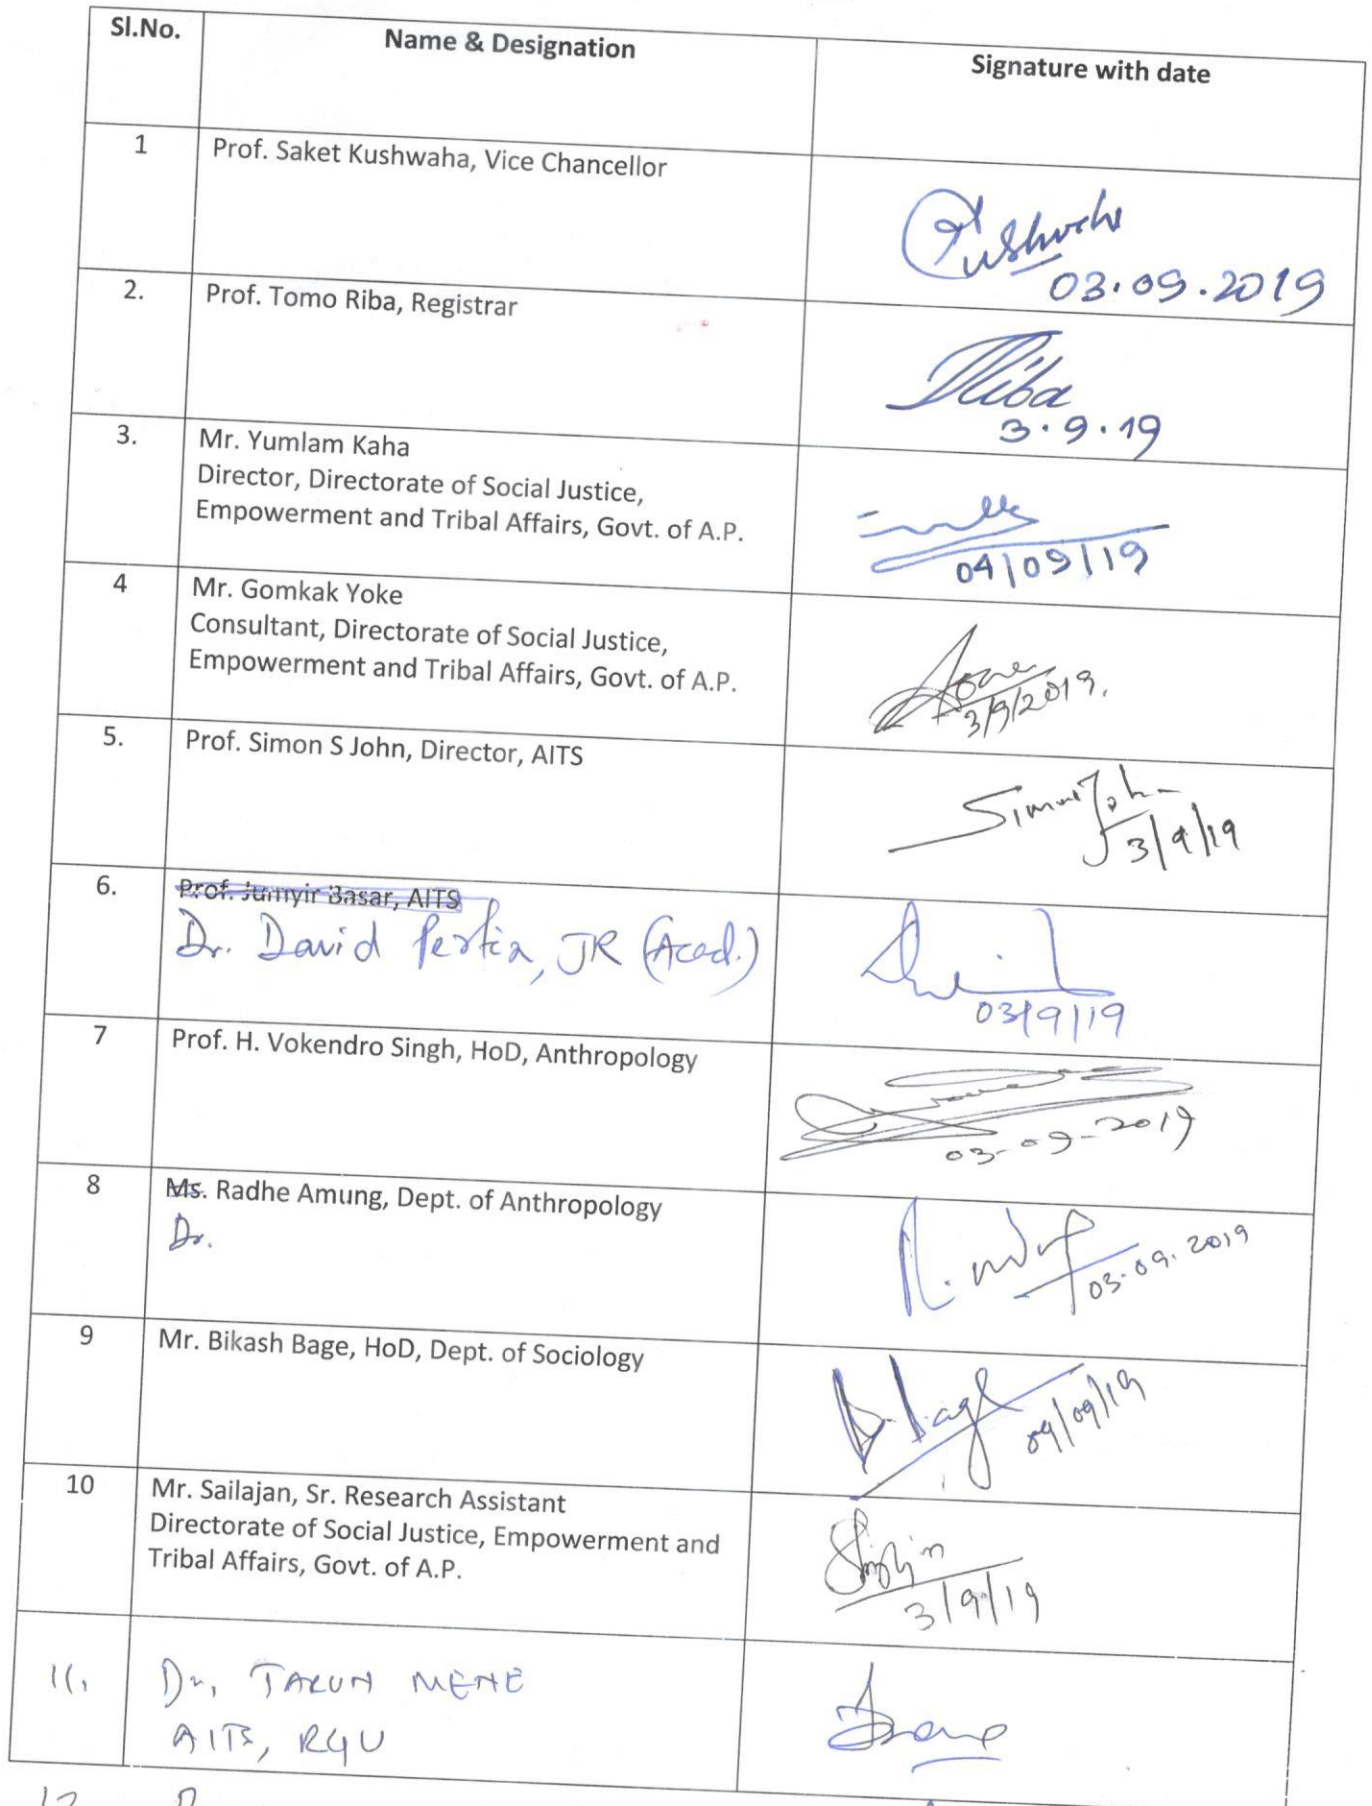 Sl.No. Name & Designation Signature with date
1 Prof. Saket Kushwaha, Vice Chancellor
Kushwaha
03.09.2019
2. Prof. Tomo Riba, Registrar
Riba
3.9.19
3. Mr. Yumlam Kaha
Director, Directorate of Social Justice,
Empowerment and Tribal Affairs, Govt. of A.P.
04/09/19
4 Mr. Gomkak Yoke
Consultant, Directorate of Social Justice,
Empowerment and Tribal Affairs, Govt. of A.P.
3/9/2019.
5. Prof. Simon S John, Director, AITS
Simon John
3/9/19
6. Prof. Jumyir Basar, AITS
Dr. David Pertin, JR (Acad.)
03/9/19
7 Prof. H. Vokendro Singh, HoD, Anthropology
03-09-2019
8 Ms. Radhe Amung, Dept. of Anthropology
Dr.
03.09.2019
9 Mr. Bikash Bage, HoD, Dept. of Sociology
B. Bage
09/09/19
10 Mr. Sailajan, Sr. Research Assistant
Directorate of Social Justice, Empowerment and
Tribal Affairs, Govt. of A.P.
3/9/19
11. Dr. TARUN MENE
AITS, RGU
12